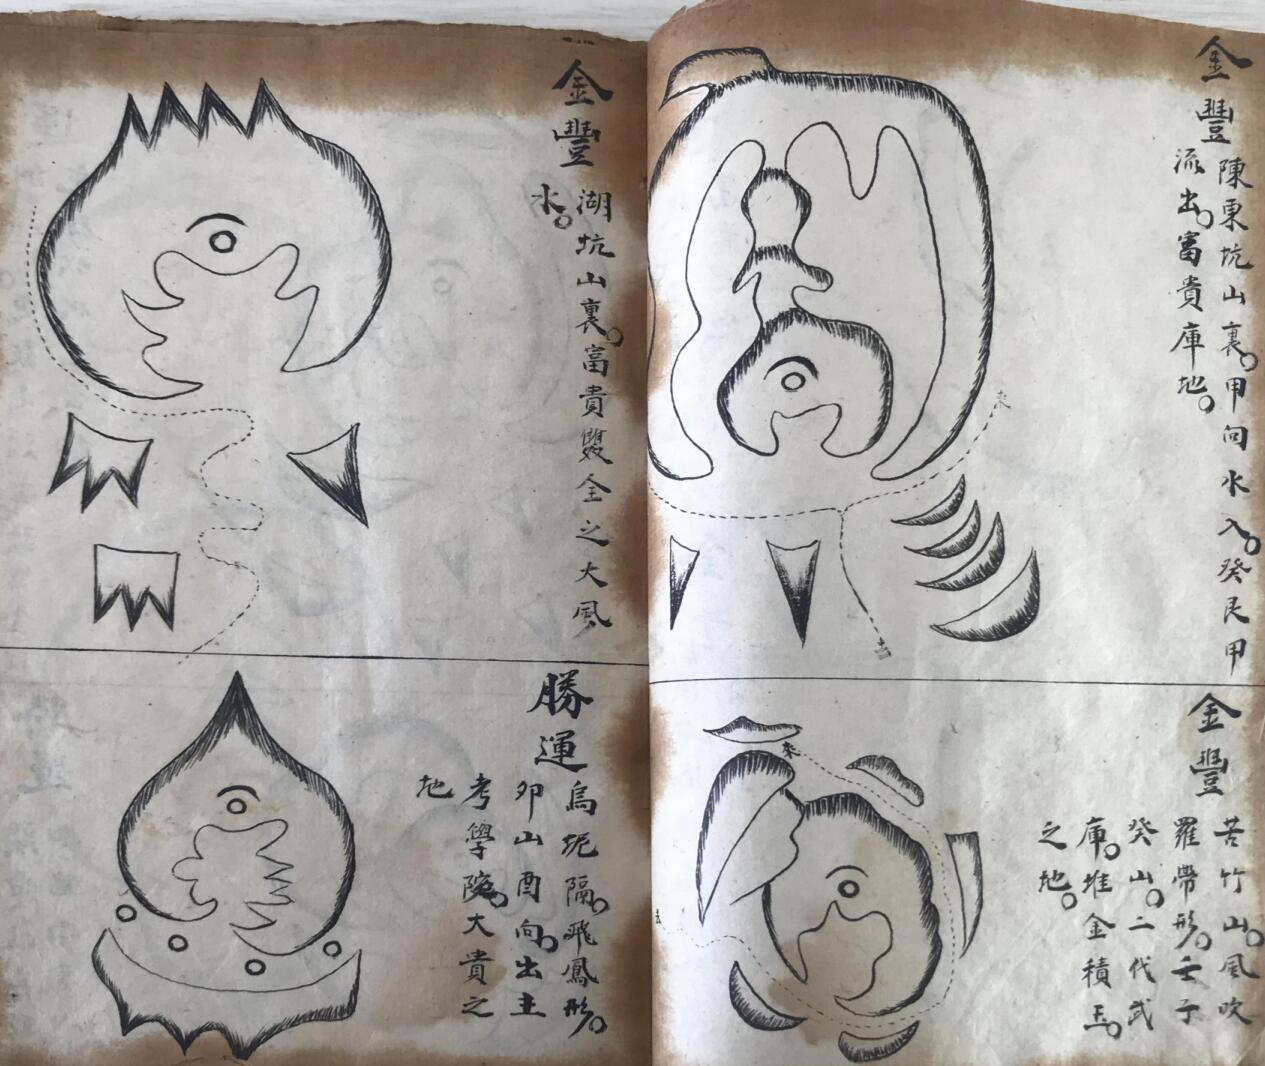 金豐
陳東坑山裏。甲向水入。癸艮甲
流出。富貴庫地。
来
去
金豐
苦竹山。風吹
羅帶形。壬子
癸山。二代武
庫。堆金積玉。
之地。
來
去
金豐
湖坑山裏。富貴雙全之大風
水。
勝運
烏坭隔。飛鳳形。
卯山酉向。出主
考學院。大貴之
地